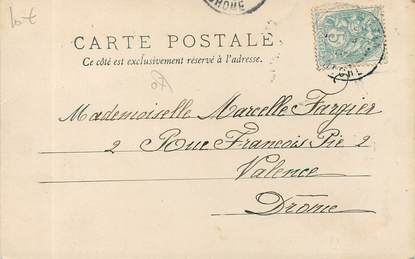 CARTE POSTALE
Ce côté est exclusivement réservé à l'adresse.
Mademoiselle Marcelle Fargier
2 Rue François Pie 2
Valence
Drome